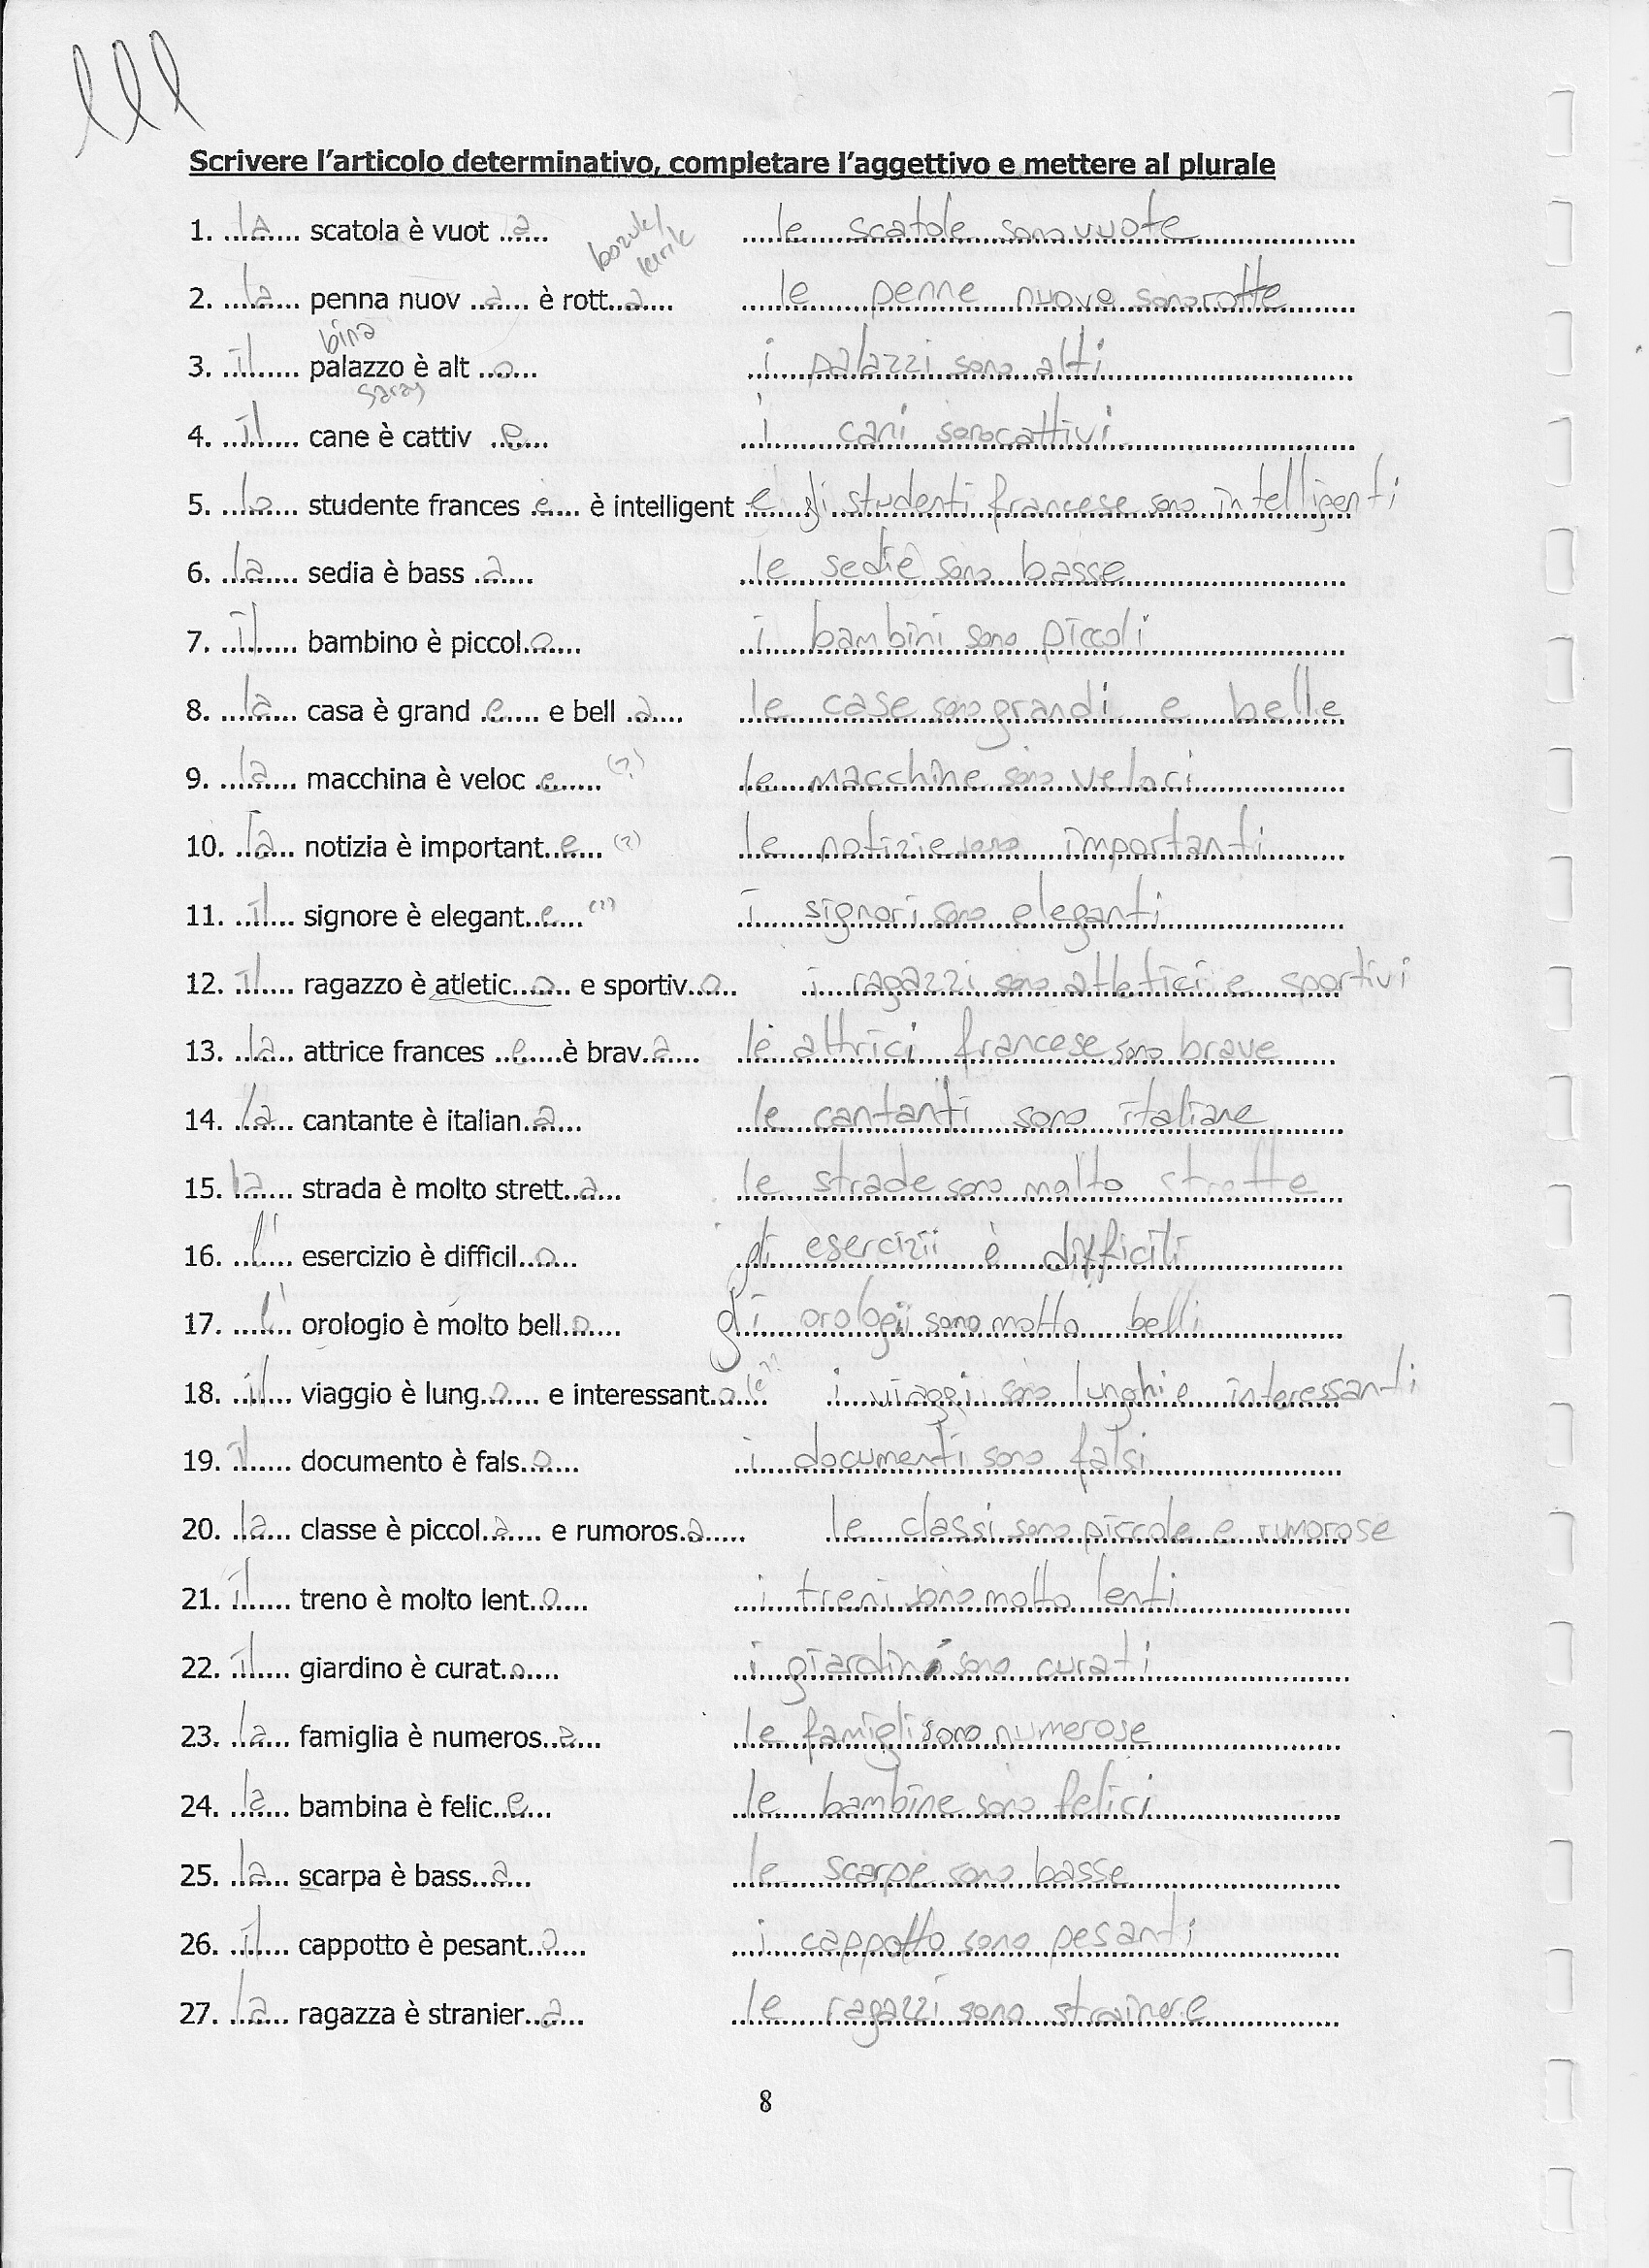 lll
Scrivere l'articolo determinativo, completare l'aggettivo e mettere al plurale
1. ...la... scatola è vuot ..a.... le scatole sono vuote
bozuk/
kırık
2. ...la... penna nuov ..a.... è rott..a.... le penne nuove sono rotte
bina
3. ...il... palazzo è alt ..o.... i palazzi sono alti
saray
4. ...il... cane è cattiv ..e.... i cani sono cattivi
5. ...lo... studente frances ..e.... è intelligent ..e.... gli studenti francese sono intelligenti
6. ...la... sedia è bass ..a.... le sedie sono basse
7. ...il... bambino è piccol..o.... i bambini sono piccoli
8. ...la... casa è grand ..e.... e bell ..a.... le case sono grandi e belle
9. ...la... macchina è veloc ..e.... (?) le macchine sono veloci
10. ...la... notizia è important..e.... (?) le notizie sono importanti
11. ...il... signore è elegant..e.... (?) i signori sono eleganti
12. ...il... ragazzo è atletic..o.... e sportiv..o.... i ragazzi sono atletici e sportivi
13. ...la... attrice frances ..e....è brav..a.... le attrici francese sono brave
14. ...la... cantante è italian..a.... le cantanti sono italiane
15. ...la... strada è molto strett..a.... le strade sono molto strette
16. ...l'... esercizio è difficil..o.... gli esercizii è difficili
17. ...l'... orologio è molto bell..o.... gli orologii sono molto belli
18. ...il... viaggio è lung..o.... e interessant..o.... le?? i viaggi sono lunghi e interessanti
19. ...il... documento è fals..o.... i documenti sono falsi
20. ...la... classe è piccol..a.... e rumoros..a.... le classi sono piccole e rumorose
21. ...il... treno è molto lent..o.... i treni sono molto lenti
22. ...il... giardino è curat..o.... i giardini sono curati
23. ...la... famiglia è numeros..a.... le famigli sono numerose
24. ...la... bambina è felic..e.... le bambine sono felici
25. ...la... scarpa è bass..a.... le scarpe sono basse
26. ...il... cappotto è pesant..o.... i cappotto sono pesanti
27. ...la... ragazza è stranier..a.... le ragazzi sono strainere
8